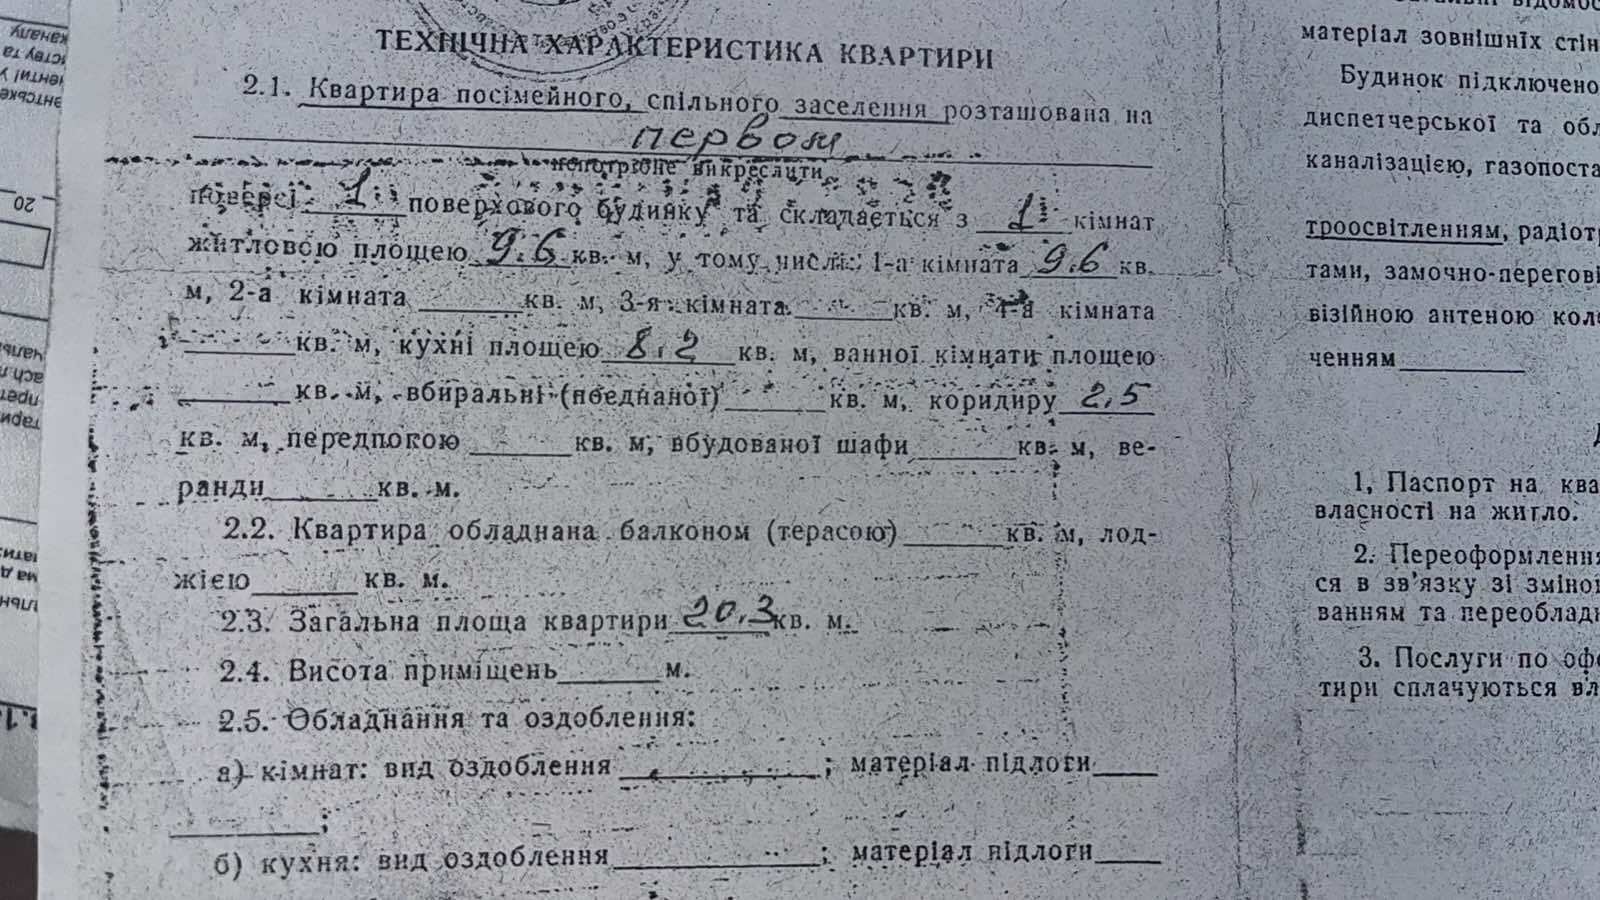 ТЕХНІЧНА ХАРАКТЕРИСТИКА КВАРТИРИ
2.1. Квартира посімейного, спільного заселення розташована на
первом
непотрібне викреслити
поверсі 1 поверхового будинку та складається з 1 кімнат
житловою площею 9.6 кв. м, у тому числі: 1-а кімната 9.6 кв.
м, 2-а кімната кв. м, 3-я кімната кв. м, 4-а кімната
кв. м, кухні площею 8,2 кв. м, ванної кімнати площею
кв. м, вбиральні (поєднаної) кв. м, коридиру 2,5
кв. м, передпокою кв. м, вбудованої шафи кв. м, ве-
ранди кв. м.
2.2. Квартира обладнана балконом (терасою) кв. м, лод-
жією кв. м.
2.3. Загальна площа квартири 20,3 кв. м.
2.4. Висота приміщень м.
2.5. Обладнання та оздоблення:
а) кімнат: вид оздоблення ; матеріал підлоги
;
б) кухня: вид оздоблення ; матеріал підлоги
матеріал зовнішніх стін
Будинок підключено
диспетчерської та
каналізацією,
троосвітленням,
тами,
візійною антеною
ченням
1, Паспорт на
власності на житло.
2. Переоформлення
ся в зв'язку зі зміною
ванням та
3. Послуги по
тири сплачуються
20
каналу